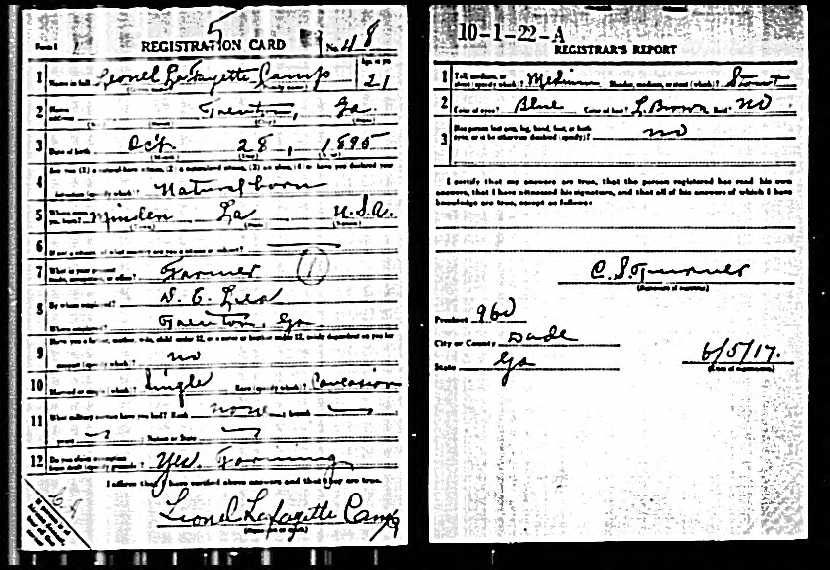 Form 1 5
REGISTRATION CARD No. 48
1 Name in full Lionel Lafayette Camp Age, in yrs 21
2 Home address Trenton, Ga
3 Date of birth Oct 28, 1895
4 Natural born
5 Where were you born? Minden La U.S.A.
6 If not a citizen, of what country are you a citizen or subject?
7 What is your present trade, occupation, or office? Farmer 1
8 By whom employed?
Where employed? Trenton, Ga
9 Have you a father, mother, wife, child under 12, or a sister or brother under 12, solely dependent on you for
support (specify which)? no
10 Married or single (which)? Single Race (specify which)? Caucasian
11 What military service have you had? Rank none ; branch
years ; Nation or State
12 Do you claim exemption from draft (specify grounds)? Yes. Farming
I affirm that I have verified above answers and that they are true.
Lionel Lafayette Camp
10-1-22-A
REGISTRAR'S REPORT
1 Tall, medium, or short (specify which)? Medium Slender, medium, or stout (which)? Stout
2 Color of eyes? Blue Color of hair? L. Brown Bald? no
3 Has person lost arm, leg, hand, foot, or both eyes, or is he otherwise disabled (specify)? no
I certify that my answers are true, that the person registered has read his own
answers, that I have witnessed his signature, and that all of his answers of which I have
knowledge are true, except as follows:
C. S. Turner
(Signature of registrar)
Precinct 960
City or County Dade
State Ga 6/5/17.
(Date of registration)